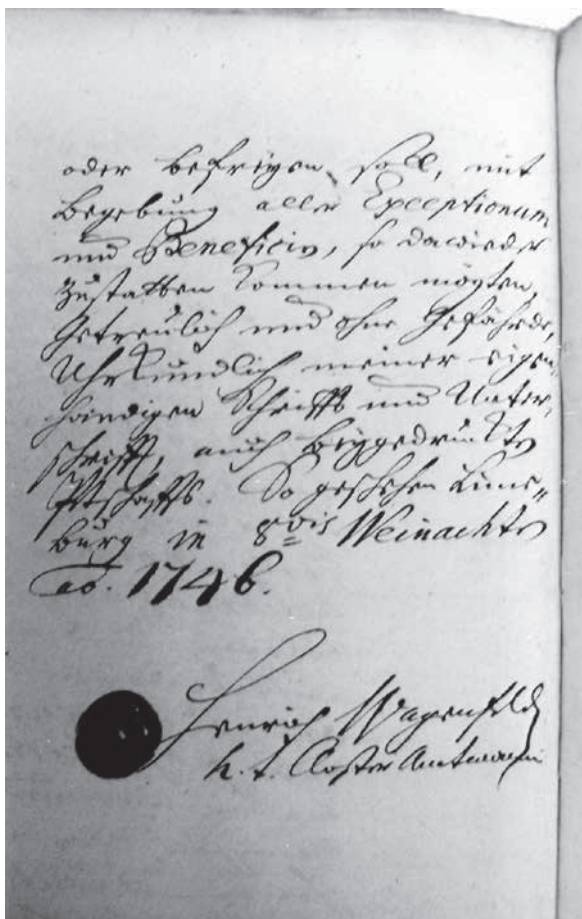 oder befreyen soll, mit
Begebung aller Exceptionum
und Beneficien, so dawieder
zustatten kommen mögten,
Getreulich und ohne Gefährde,
Uhrkundlich meiner eigen-
händigen Schrifft und Unter-
schrifft, auch beygedruckten
Pettschaffts. So geschehen Lüne-
burg in 8vis Weinachten
Ao. 1746.
Henrich Wagenfeld
h. t. Closter Amtmann